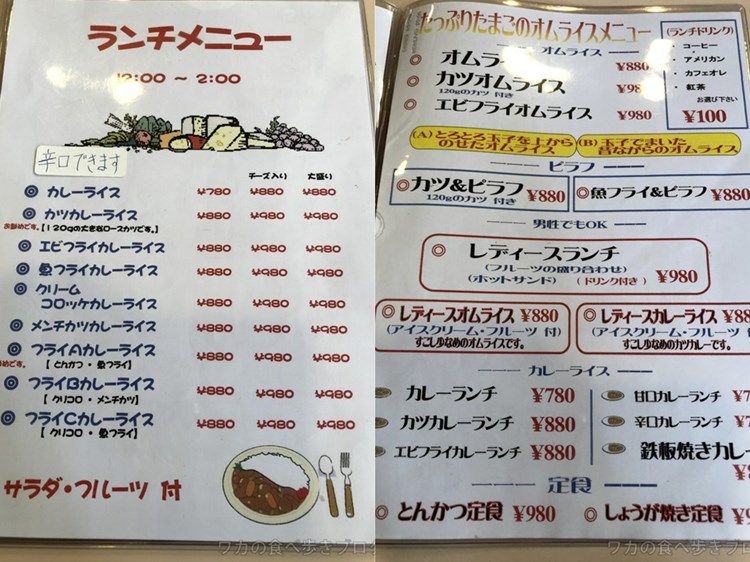 ランチメニュー
12:00 ～ 2:00
辛口できます
チーズ入り 大盛り
◎ カレーライス ¥780 ¥880 ¥880
◎ カツカレーライス ¥880 ¥980 ¥980
お勧めです。【120gの大きなロースカツです。】
◎ エビフライカレーライス ¥880 ¥980 ¥980
◎ 魚フライカレーライス ¥880 ¥980 ¥980
◎ クリーム
コロッケカレーライス ¥880 ¥980 ¥980
◎ メンチカツカレーライス ¥880 ¥980 ¥980
◎ フライAカレーライス ¥880 ¥980 ¥980
【 とんかつ・魚フライ】
◎ フライBカレーライス ¥880 ¥980 ¥980
【 クリコロ・メンチカツ】
◎ フライCカレーライス ¥880 ¥980 ¥980
【 クリコロ・魚フライ】
サラダ・フルーツ 付
たっぷりたまごのオムライスメニュー
オムライス
◎ ¥880
◎ カツオムライス ¥980
120gのカツ 付き
◎ エビフライオムライス ¥980
(ランチドリンク)
・コーヒー
・アメリカン
・カフェオレ
・紅茶
お選び下さい
¥100
(A) とろとろ玉子を上から
のせたオムライス
(B) 玉子でまいた
昔ながらのオムライス
ピラフ
◎カツ&ピラフ ¥880
120gのカツ 付き
◎魚フライ&ピラフ ¥880
男性でもOK
◎ レディースランチ
(フルーツの盛り合わせ)
(ホットサンド) (ドリンク付き) ¥980
◎レディースオムライス ¥880
(アイスクリーム・フルーツ 付)
すこし少なめのオムライスです。
◎レディースカレーライス
(アイスクリーム・フルーツ
すこし少なめのカツカレーです。
カレーライス
カレーランチ ¥780
カツカレーランチ ¥880
エビフライカレーランチ ¥880
甘口カレーランチ
辛口カレーランチ
鉄板焼きカレー
定食
◎ とんかつ定食 ¥980
◎ しょうが焼き定食
ワカの食べ歩きブログ
ワカの食べ歩きブロ